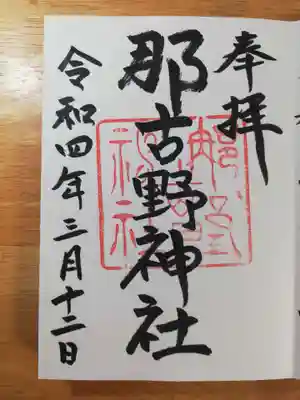 奉拝
那古野神社
令和四年三月十二日